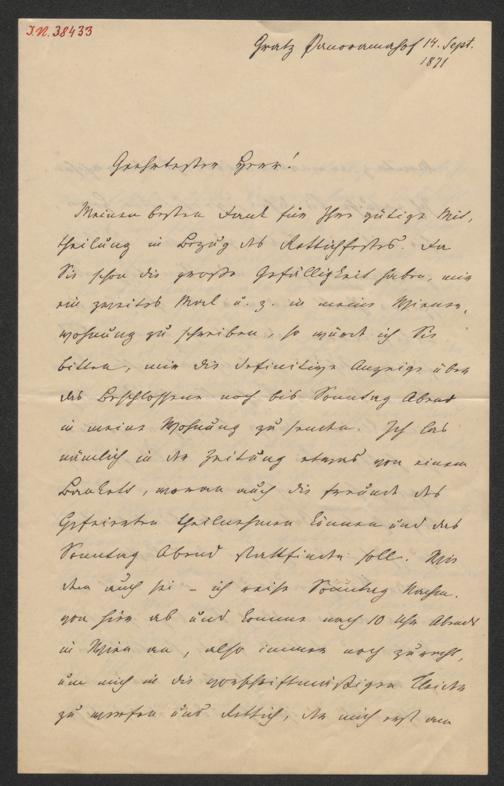 I.N. 38433
Gratz Panoramahof 14. Sept.
1871
Geehrtester Herr!
Meinen besten Dank für Ihre gütige Mit-
theilung in Bezug des Rettichfestes. Da
Sie schon die große Gefälligkeit haben, mir
ein zweites Mal u. z. in meine Wiener-
wohnung zu schreiben, so würde ich Sie
bitten, mir die definitive Anzeige über
das Beschlossene noch bis Sonntag Abend
in meine Wohnung zu senden. Ich las
nämlich in der Zeitung etwas von einem
Bankett, woran auch die Freunde des
Gefeierten theilnehmen können und das
Sonntag Abend stattfinden soll. Wie
dem auch sei – ich reise Sonntag Nachm.
von hier ab und komme nach 10 Uhr Abends
in Wien an, also immer noch zurecht,
um mich in die vorschriftmäßigen Kleider
zu werfen und Rettich, der mich erst am